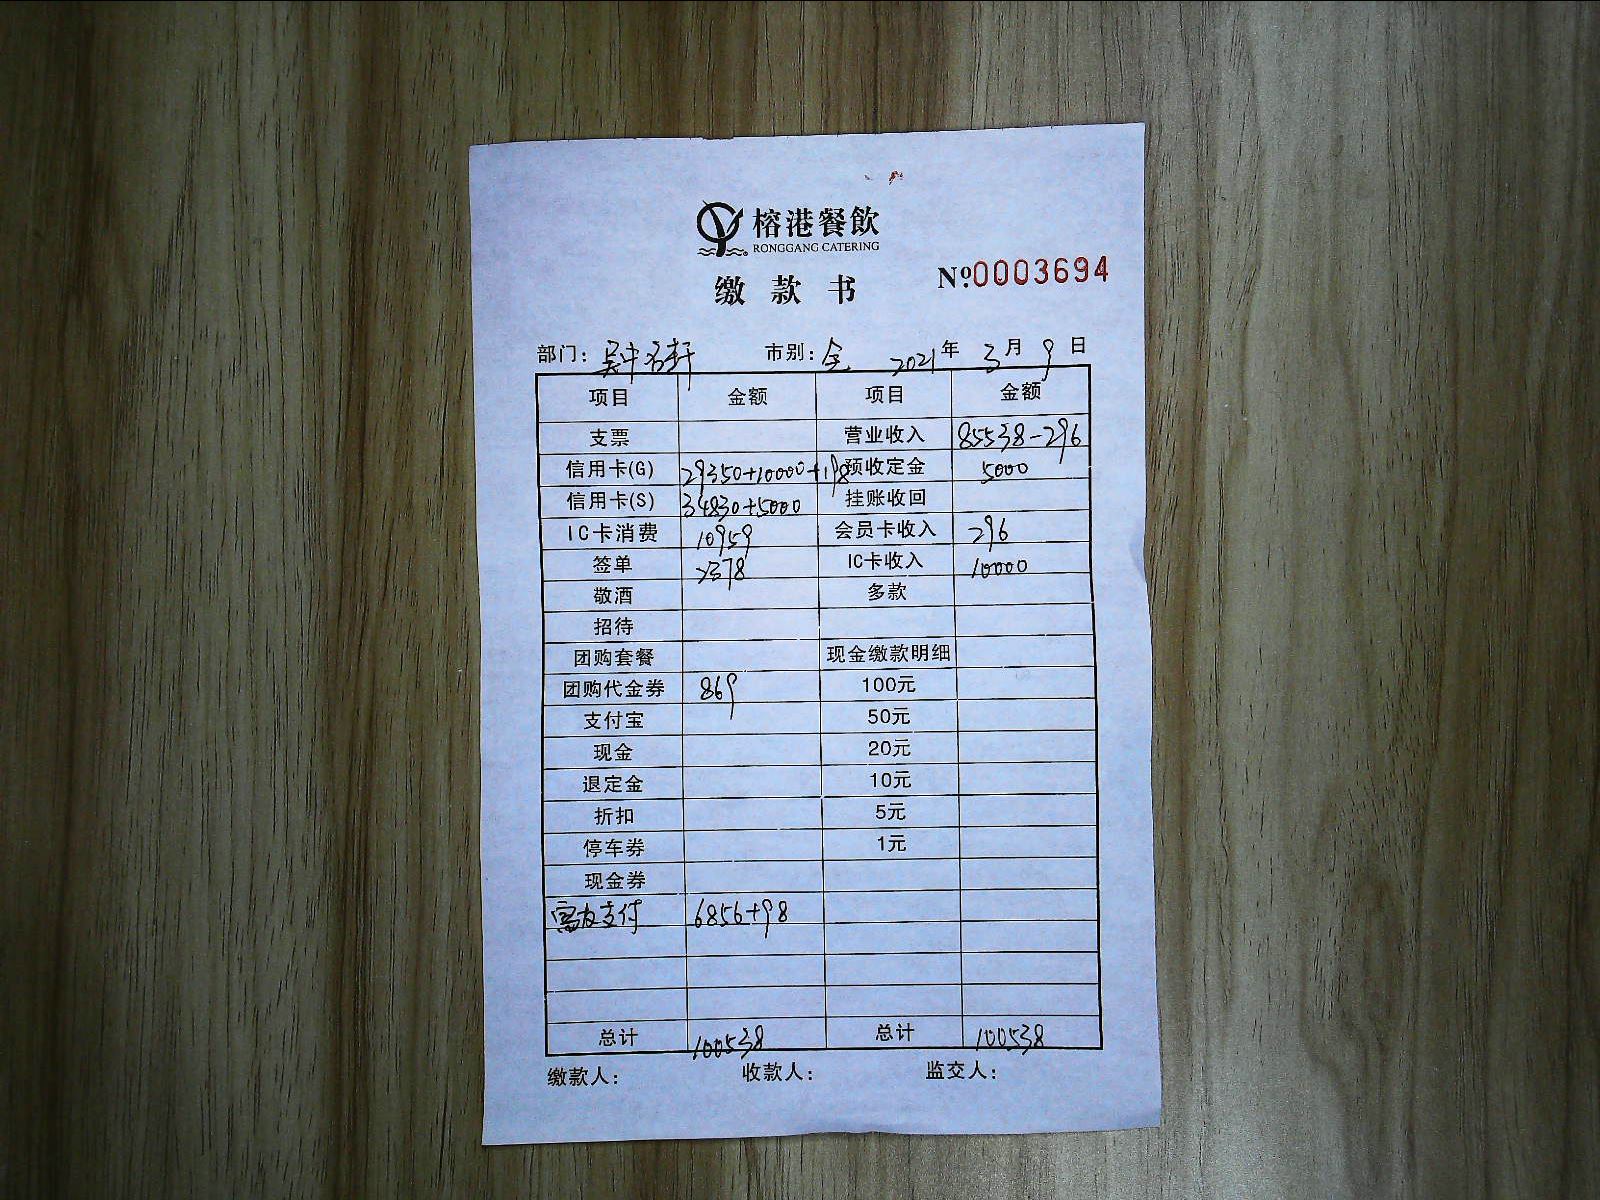 榕港餐飲
RONGGANG CATERING
缴款书 Nº:0003694
部门: 吴中名轩 市别: 全 2021年 3月 9日
项目 金额 项目 金额
支票 营业收入 85538-296
信用卡(G) 29350+10000+198 预收定金 5000
信用卡(S) 34830+5000 挂账收回
IC卡消费 10959 会员卡收入 296
签单 2378 IC卡收入 10000
敬酒 多款
招待
团购套餐 现金缴款明细
团购代金券 869 100元
支付宝 50元
现金 20元
退定金 10元
折扣 5元
停车券 1元
现金券
富友支付 6856+98
总计 100538 总计 100538
缴款人: 收款人: 监交人: